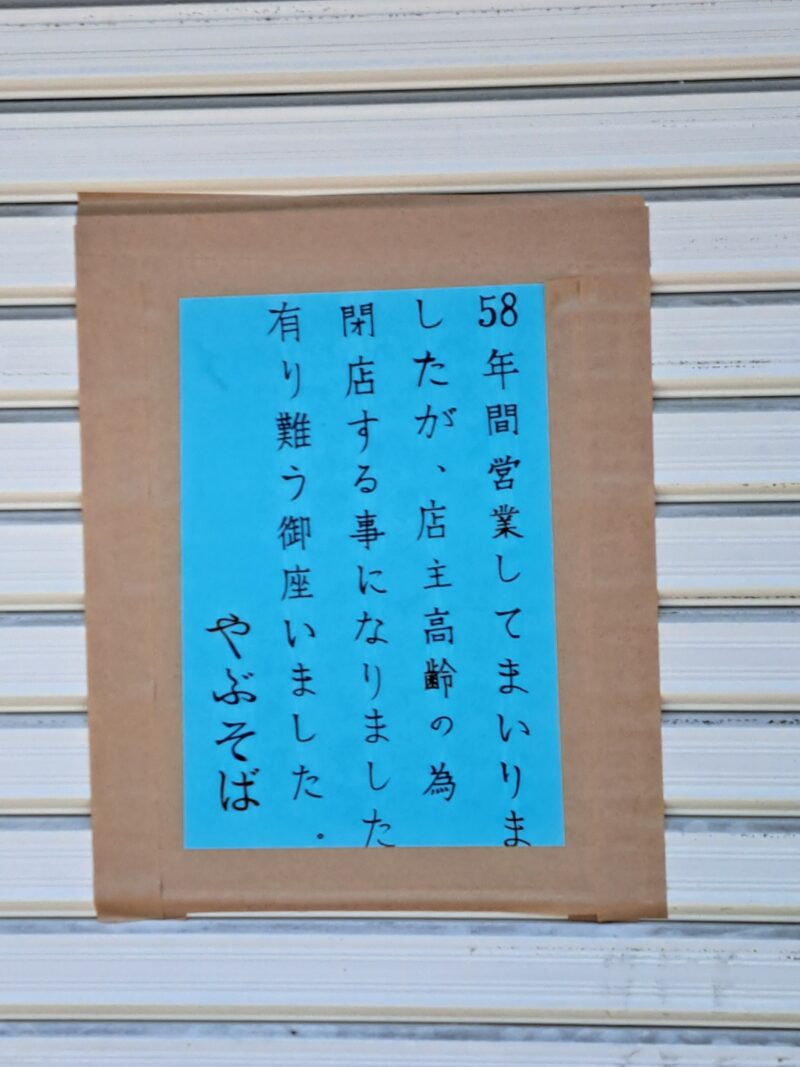 58年間営業してまいりま
したが、店主高齢の為
閉店する事になりました
有り難う御座いました.
やぶそば